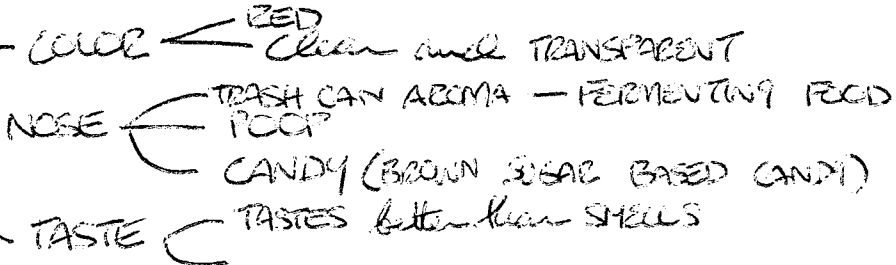 RED
- COLOR Clear and TRANSPARENT
TRASH CAN AROMA — FERMENTING FOOD
NOSE POOP
CANDY (BROWN SUGAR BASED CANDY)
- TASTE TASTES better than SMELLS